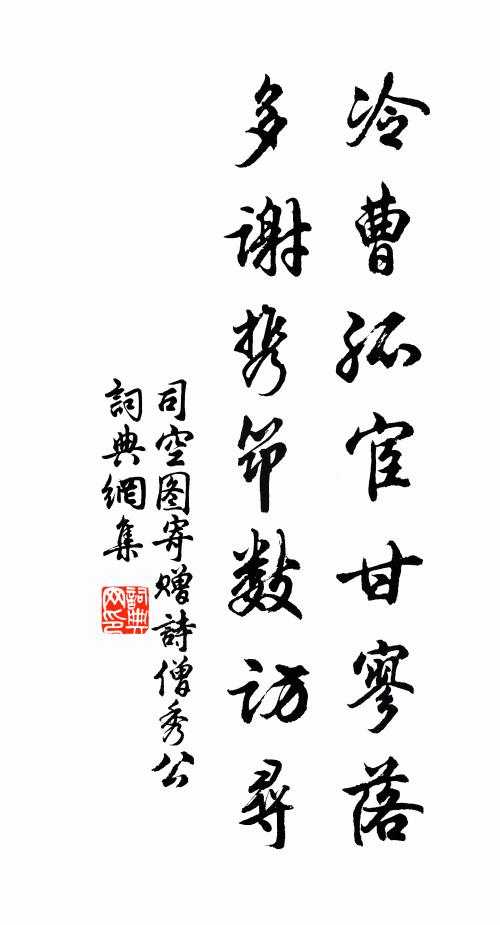 冷曹孤宦甘寥落
多謝携筇數訪尋
司空图寄赠詩僧秀公
詞典網集
詞典网印